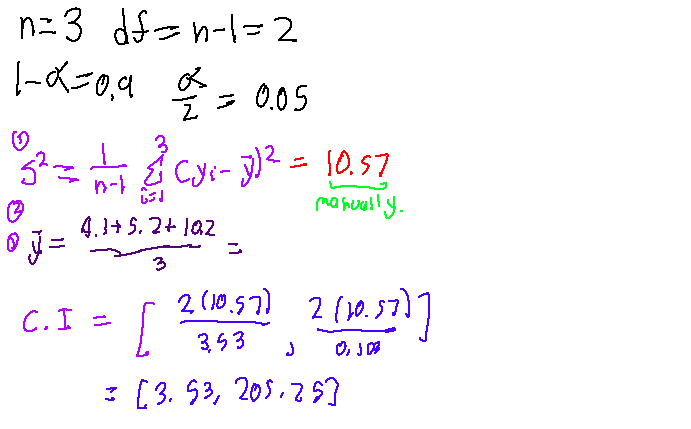 n=3 df = n-1 = 2
1-α=0,9 α/2 = 0.05
① S² = 1/(n-1) 3 Σ i=1 (yi - ȳ)² = 10.57
manually.
②
① ȳ = (4.1+5.2+10.2)/3 =
C.I = [ 2(10.57)/3,53 , 2(10.57)/0,103 ]
= [3.53, 205.25]